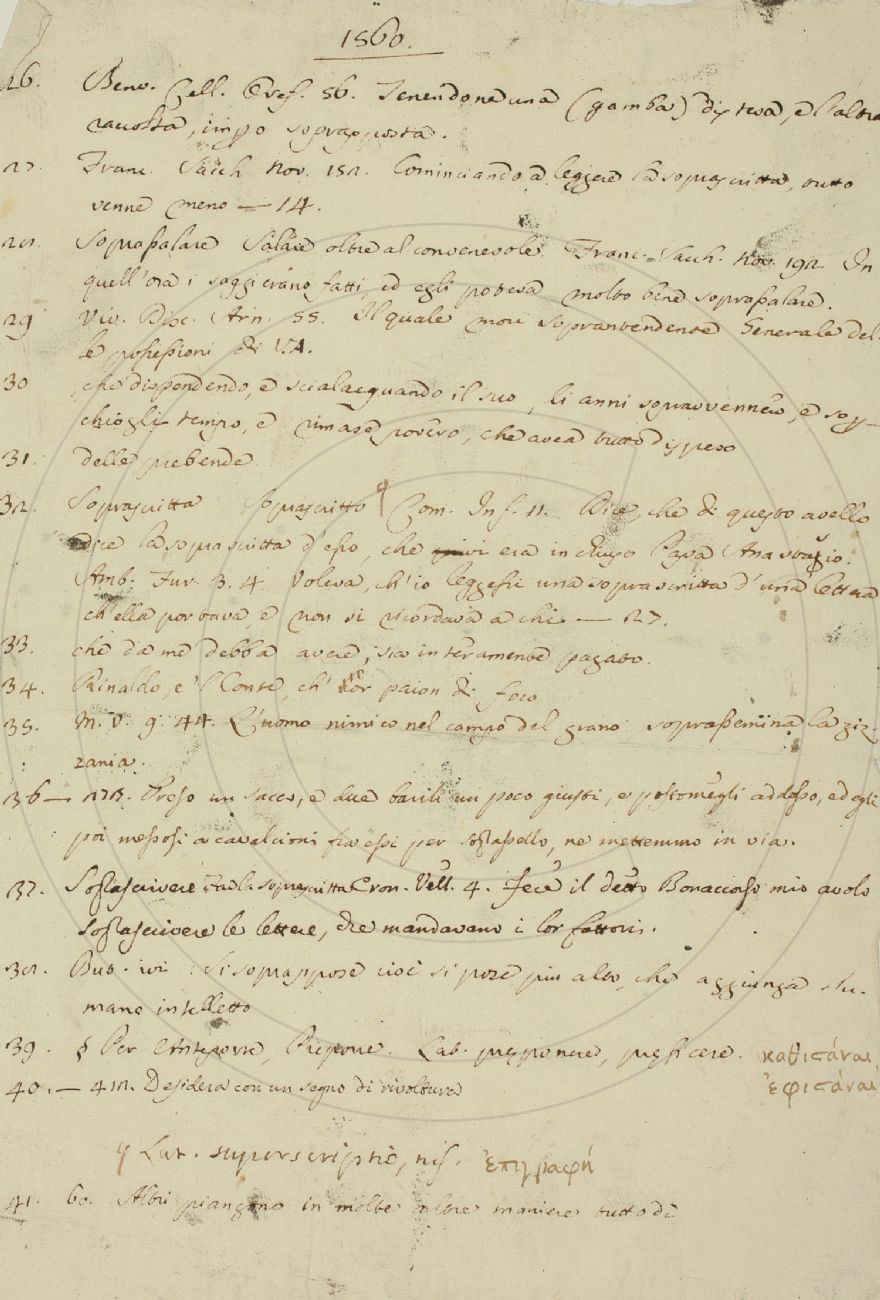 1560.
26. Benv. Cell. Oref. 56. Tenendone una (gamba) distesa, e l'altra
raccolta, in so soprapposta.
27. Franc. Sacch. Nov. 152. Cominciando a leggere la soprascritta, tutto
venne meno — 14.
28. Soprassalare Salare oltre al convenevole. Franc. Sacch. Nov. 192. In
quell'ora i saggi erano fatti, ed egli poteva molto bene soprassalare.
29 Viv. Disc. Arn. 55. Il quale morì sopranтendente Generale del-
le possessioni di V.A.
30 che dispendendo, e scialacquando il suo, li anni sopravvennero, e sop-
chiogli tempo, e rimase povero, che avea tutto dispeso
31. delle prebende
32. Soprascritta Soprascritto ¶ Com. Inf. 11. Dice, che di questo avello
dice la soprascritta d'esso, che quivi era inchiuso Papa Anastagio.
Amb. Fur. 3. 4. Voleva, ch'io leggessi una soprascritta d'una lettera
ch'ella portava, e non si ricordava a chi — 27.
33. che da me debba avere, sia interamente pagato.
34. Rinaldo, e 'l Conte, ch' paion di foco
35. M. V. 9. 44. L'uomo nimico nel campo del grano soprassemina la ziz-
zania.
36 — 278. Preso un sacco, e due barili un poco giusti, e postomegli addosso, ed egli
poi messosi a cavalcioni fra essi per soprassello, ne mettemmo in via.
37. Soprascrivere Far la soprascritta Cron. Vell. 4. Fece il detto Bonaccorso mio avolo
soprascrivere le lettere, che mandavano i lor fattori.
38. But. ivi: Si soprappose cioè si pose più alto, che aggiunga l'u-
mano intelletto
39. § Per Anteporre, Preporre. Lat. præponere, præficere. καθιστάναι
40. — 412. Desidera con un segno di rivoltura ἐφιστάναι
¶ Lat. superscriptio, nis. ἐπιγραφή
41. 60. Altri piangono in molte altre maniere tutto dì